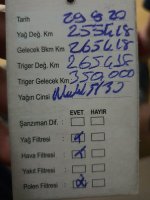 Tarih 29.9.20
Yağ Değ. Km 255418
Gelecek Bkm Km 265418
Triger Değ. Km 265418
Triger Gelecek Km 350.000
Yağın Cinsi
EVET HAYIR
Şanzıman Dif.
Yağ Filtresi
Hava Filtresi
Yakıt Filtresi
Polen Filtresi